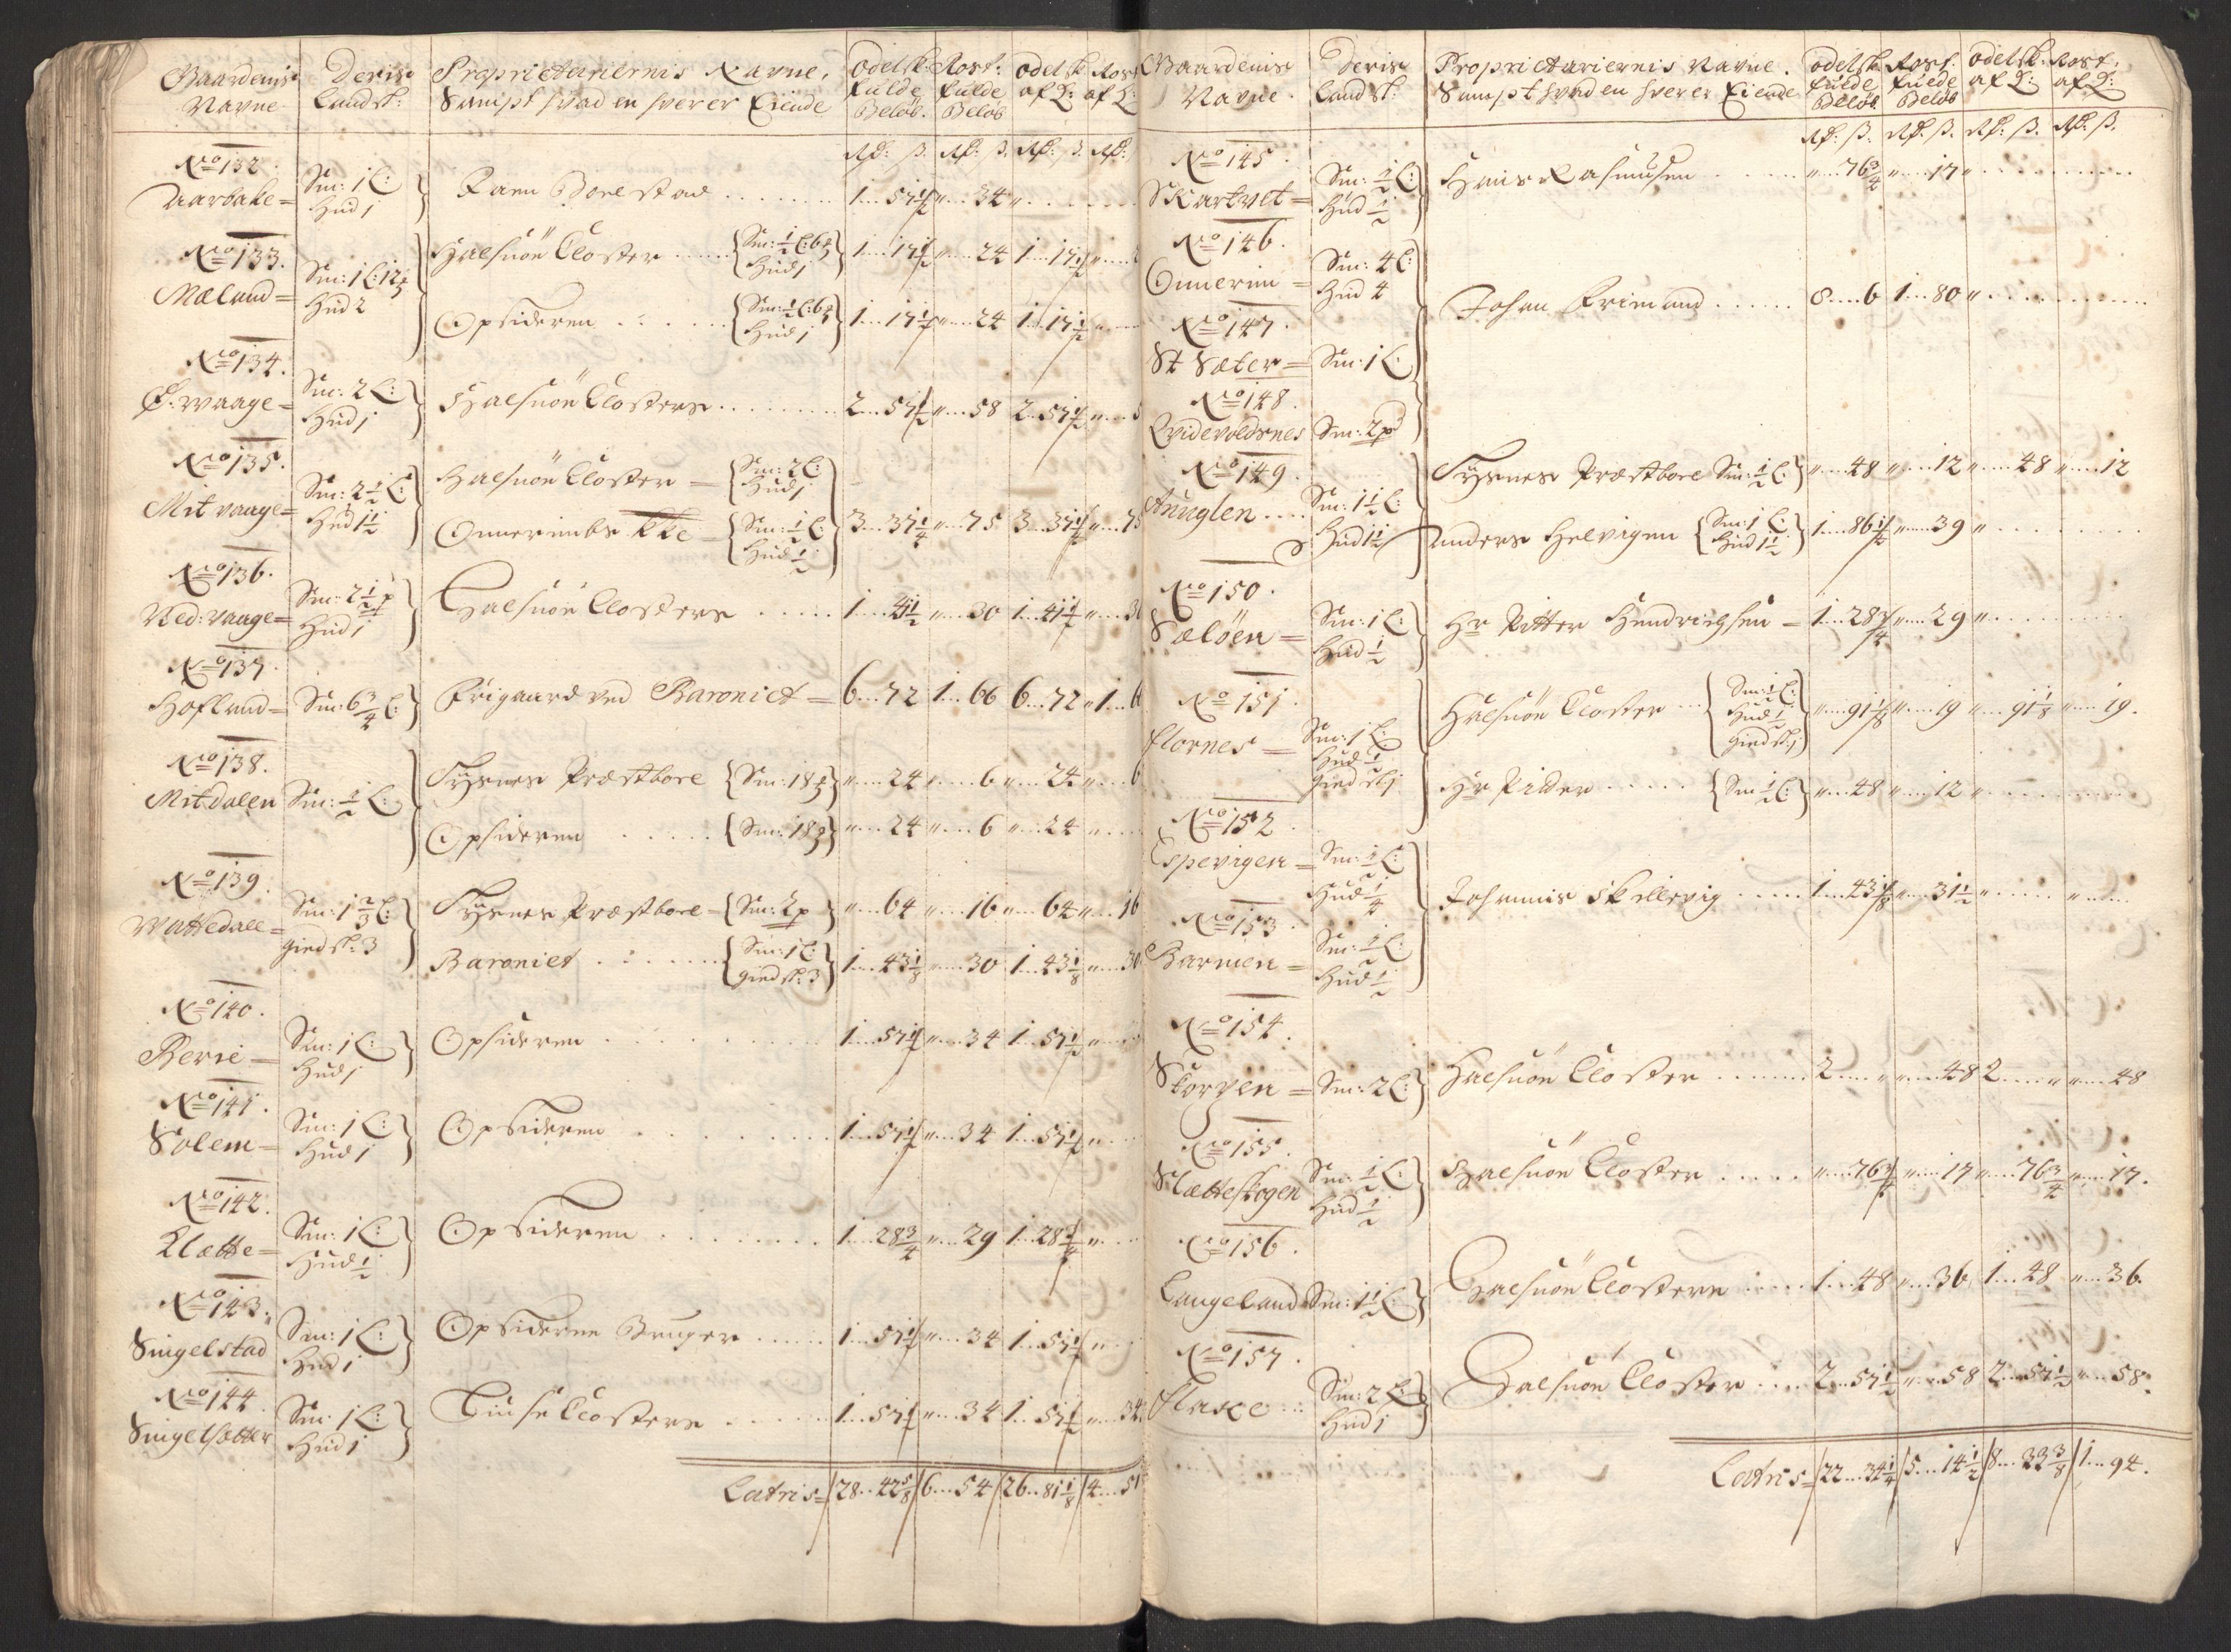 Gaardenis Navne
Deris Landsk:
Proprietariernis Navne,
Sampt hvad en hver er Eiende
Odelsk: fulde Beløb.
Rost: fulde Beløb
Odelsk af
Rost af
Rd: ß. Rd: ß. Rd: ß. Rd:
No 132.
Aarbake =
Sm: 1 L:
Hud 1
Borestad 1 .. 57½ " .. 34 "
No 133.
Mæland =
Sm: 1 L: 12
Hud 2
Halsnöe Closter Sm: ½ L: 6 Hud 1 1 .. 17½ " .. 24 1 .. 17½ "
Opsideren Sm: ½ L: 6 Hud 1 1 .. 17½ " .. 24 1 .. 17½ "
No 134.
Ø. waage =
Sm: 2 L:
Hud 1
Halsnöe Closter 2 .. 57½ " .. 58 2 .. 57½ " .. 5
No 135.
Mit vaage =
Sm: 2½ L:
Hud 1½
Halsnöe Closter = Sm: 2 L: Hud 1
Onnerimbs Kke = Sm: ½ L: Hud ½ 3 .. 37¼ " .. 75 3 .. 37¼ " .. 75
No 136.
Ned: vaage =
Sm: 2½ p
Hud 1
Halsnöe Closter 1 .. 41½ " .. 30 1 .. 41½ " .. 30
No 137.
Hofland =
Sm: 6¾ L:
Frigaard ved Baroniet = 6 .. 72 1 .. 66 6 .. 72 " 1 .. 6
No 138.
Mitdalen
Sm: ½ L:
Tysnes Præstbore Sm: 18 " .. 24 " .. 6 " .. 24 " .. 6
Opsideren Sm: 18 " .. 24 " .. 6 " .. 24 "
No 139.
Wattedale =
Sm: 1⅔ L:
giedsk: 3
Tysnes Præstbore = Sm: 2 p " .. 64 " .. 16 " .. 64 " .. 16
Baroniet Sm: 1 L: giedsk: 3 1 .. 43⅛ " .. 30 1 .. 43⅛ " .. 30
No 140.
Berie =
Sm: 1 L:
Hud 1
Opsideren 1 .. 57½ " .. 34 1 .. 57½ "
No 141.
Solem =
Sm: 1 L:
Hud 1
Opsideren 1 .. 57½ " .. 34 1 .. 57½ "
No 142.
Klætte =
Sm: 1 L:
Hud ½
Opsideren 1 .. 28¾ " .. 29 1 .. 28¾ "
No 143.
Singelstad
Sm: 1 L:
Hud 1
Opsideren Bruger 1 .. 57½ " .. 34 1 .. 57½ "
No 144.
Singelsætter
Sm: 1 L:
Hud 1
Liuse Closter 1 .. 57½ " .. 34 1 .. 57½ " .. 34
Latris = 28 .. 42⅝ 6 .. 54 26 .. 81⅛ 4 .. 51
Gaardenis Navne.
Deris Landsk:
Proprietariernis Navne.
Sampt hvad en hver er Eiende
Odelsk: fulde Beløb
Rost: fulde Beløb
Odelsk: af
Rost: af
Rd: ß. Rd: ß. Rd: ß. Rd: ß.
No 145.
Skartvet =
Sm: ½ L:
Hud ½
Hans Rasmusen " .. 76¾ " .. 17 "
No 146.
Onnerim =
Sm: 4 L:
Hud 4
Johan Friemand 8 .. 6 1 .. 80 "
No 147.
St Sæter =
Sm: 1 L:
No 148.
Qvidevoldsnes
Sm: 2 p
No 149.
Anuglen
Sm: 1½ L:
Hud 1½
Tysnes Præstbore Sm: ½ L: " .. 48 " .. 12 " .. 48 " .. 12
Anders Helvigen Sm: 1 L: Hud 1½ 1 .. 86¼ " .. 39 "
No 150.
Sæløen =
Sm: 1 L:
Hud ½
Hr Pitter Hendrichsen = 1 .. 28¾ " .. 29 "
No 151.
Flornes =
Sm: 1 L:
Hud ½
giedsk 1
Halsnöe Closter Sm: ½ L: Hud ½ giedsk: 1 " .. 91⅛ " .. 19 " .. 91⅛ " .. 19.
Hr Pitter Sm ½ L: " .. 48 " .. 12 "
No 152.
Espevigen =
Sm: ½ L:
Hud ¼
Johannis Skellevig 1 .. 43⅛ " .. 31½ "
No 153.
Barmen =
Sm: ½ L:
Hud ½
No 154.
Skorpen =
Sm: 2 L:
Halsnöe Closter 2 .. " " .. 48 2 .. " " .. 48
No 155.
Slætteskogen
Sm: ½ L:
Hud ½
Halsnöe Closter " .. 76¾ " .. 17 " .. 76¾ " .. 17.
No 156.
Langeland
Sm: 1½ L:
Halsnöe Closter 1 .. 48 " .. 36 1 .. 48 " .. 36.
No 157.
Flaxe
Sm: 2 L:
Hud 1
Halsnöe Closter 2 .. 57½ " .. 58 2 .. 57½ " .. 58.
Latris = 22 .. 34¼ 5 .. 14½ 8 .. 33⅜ 1 .. 94.